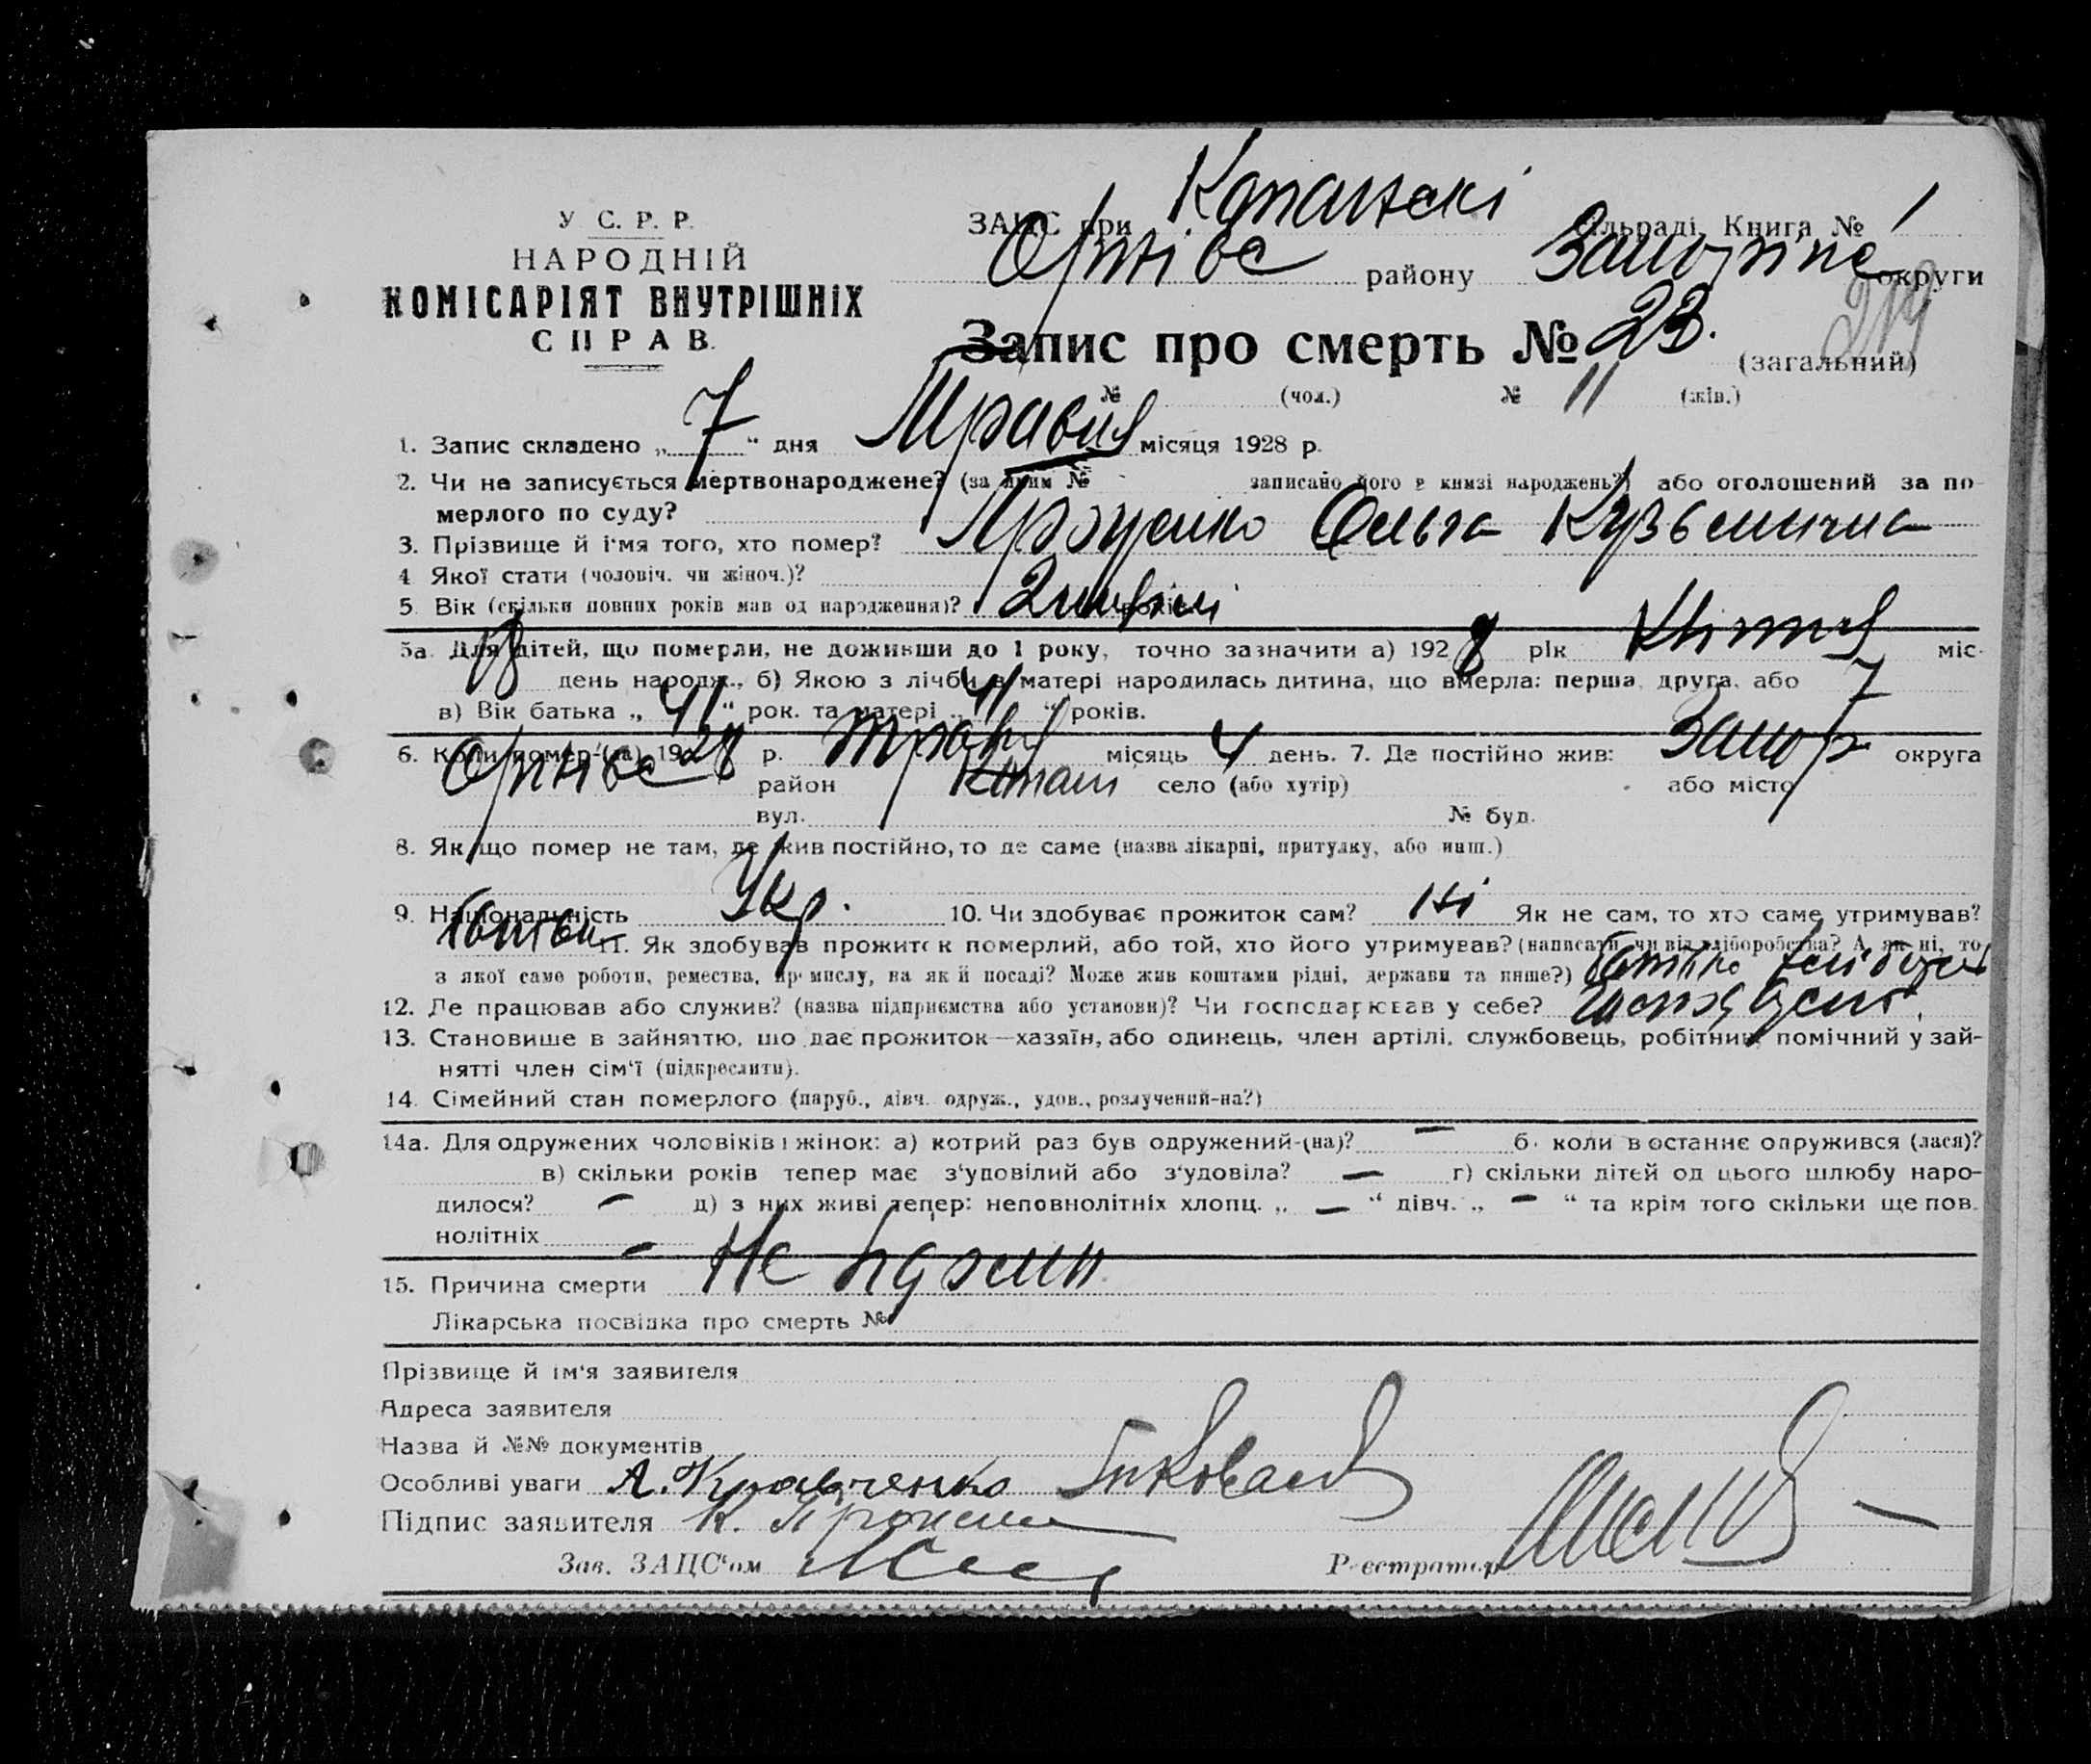 У С. Р. Р.
НАРОДНІЙ
КОМІСАРІЯТ ВНУТРІШНІХ
СПРАВ.
ЗАЦС при Копанські сільраді, Книга № 1
Оріхівс району Запоріже округи
219
Запис про смерть № 23. (загальний)
№ (чол.) № 11 (жін.)
1. Запис складено „ 7 “ дня Травня місяця 1928 р.
2. Чи не записується мертвонароджене? (за яким № записано його в книзі народжень?) або оголошений за по-
мерлого по суду?
3. Прізвище й і'мя того, хто помер? Проценко Ольга Кузьминична
4 Якої стати (чоловіч. чи жіноч.)?
5. Вік (скільки повних років мав од народження)?
5а. Для дітей, що померли, не доживши до 1 року, точно зазначити а) 1928 рік Квітня міс-
день народж., б) Якою з лічби в матері народилась дитина, що вмерла: перша, друга, або 7
в) Вік батька „ 41 “ рок. та матері „ 41 “ років.
6. Коли помер-(ла) 1928 р. травня місяць 4 день. 7. Де постійно жив: Запор округа
Оріхівс район Копані село (або хутір) або місто
вул. № буд.
8. Якщо помер не там, де жив постійно, то де саме (назва лікарні, притулку, або инш.)
9. Національність Укр. 10. Чи здобуває прожиток сам? ні Як не сам, то хто саме утримував?
батьки 11. Як здобував прожиток померлий, або той, хто його утримував? (написати, чи від хліборобства? А як ні, то
з якої саме роботи, ремества, промислу, на якій посаді? Може жив коштами рідні, держави та инше?)
12. Де працював або служив? (назва підприємства або установи)? Чи господарював у себе?
13. Становище в зайняттю, що дає прожиток—хазяїн, або одинець, член артілі, службовець, робітник, помічний у зай-
нятті член сім'ї (підкреслити).
14. Сімейний стан померлого (паруб., дівч. одруж., удов., розлучений-на?)
14а. Для одружених чоловіків і жінок: а) котрий раз був одружений-(на)? — б. коли востаннє одружився (лася)?
в) скільки років тепер має з'удовілий або з'удовіла? — г) скільки дітей од цього шлюбу наро-
дилося? — д) з них живі тепер: неповнолітніх хлопц. „ — “ дівч. „ — “ та крім того скільки ще пов.
нолітніх —
15. Причина смерти Не
Лікарська посвідка про смерть №
Прізвище й ім'я заявителя
Адреса заявителя
Назва й №№ документів
Особливі уваги А. Кравченко
Підпис заявителя К. Проценко
Зав. ЗАЦС'ом Реєстратор